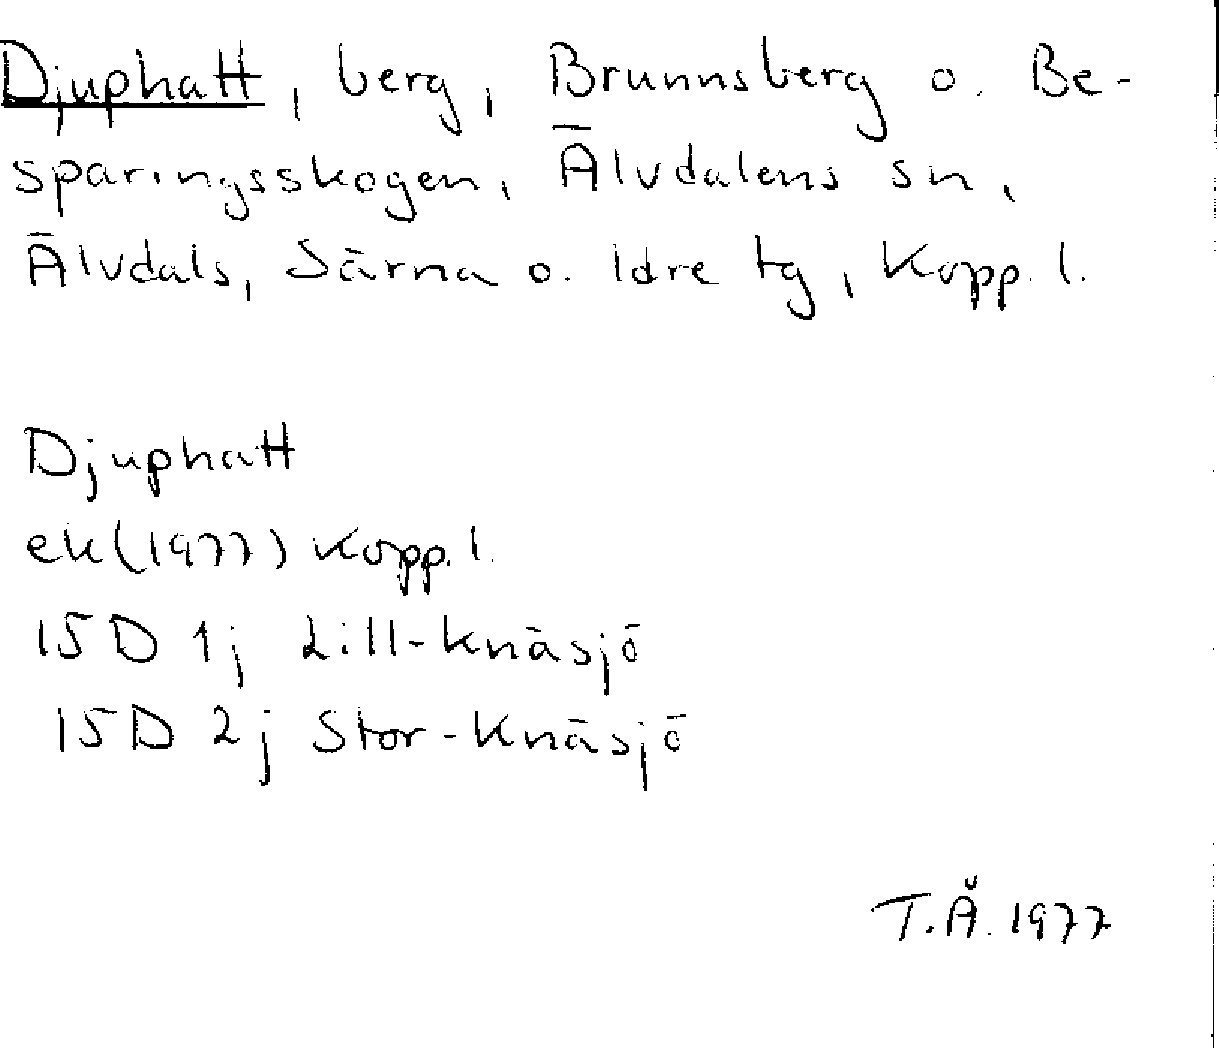 Djuphatt, berg, Brunnsberg o. Be-
sparingsskogen, Älvdalens sn,
Älvdals, Särna o. Idre tg, Kopp. l.
Djuphatt
ek(1977) Kopp. l.
15D 1j Lill-Knäsjö
15D 2j Stor-Knäsjö
T.Å. 1977